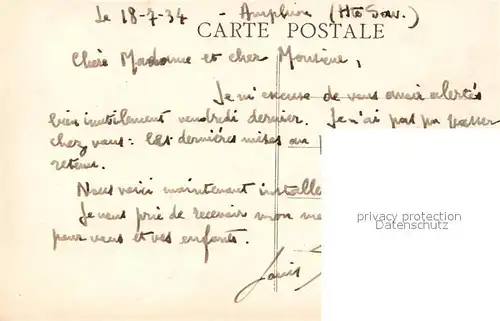 Le 18-7-34 - Amphion (Hte Sav.)
CARTE POSTALE
Chère Madame et cher Monsieur,
Je m'excuse de vous avoir alertés
bien inutilement vendredi dernier. Je n'ai pas pu passer
chez vous: les dernières mises au
retenu.
Nous voici maintenant installe
Je vous prie de recevoir mon me
privacy protection
Datenschutz
pour vous et vos enfants.
Louis